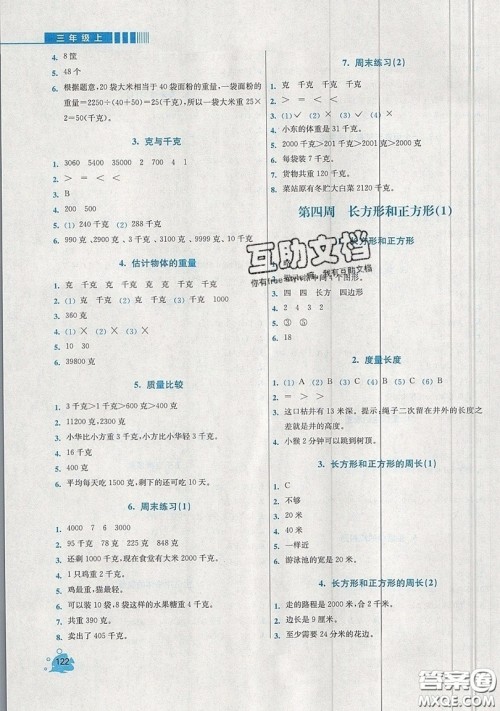 三年级上
4. 8筐
5. 48个
6. 根据题意，20袋大米相当于40袋面粉的重量，一袋面粉的
重量=2250÷(40+50)=25(千克)，所以一袋大米重25×
2=50(千克)。
3. 克与千克
1. 3060 5400 35000 2 700 4 1
2. > = < < > <
3. B
4. ×
5. (1) 240千克 (2) 288千克
6. 990克、2990克、3千克、3100克、9999克、10千克
4. 估计物体的重量
1. 克 千克 克 千克 克 千克 克 千克
2. (1) 克 千克 (2) 千克 (3) 千克 克
3. (1) × (2) × (3) × (4) ×
4. ×
5. 10 30
6. 39800克
5. 质量比较
1. 3千克>1千克>600克>300克
2. > < = > < =
3. 小华比小方重3千克，小方比小华轻3千克。
4. 16千克
5. 400克
6. 每天平均吃1500克，剩下的还可吃10天。
6. 周末练习(1)
1. 4000 7 6 3000
2. 95千克 78克 225克 848克
3. 还剩1000千克，现在食堂有大米2000千克。
4. 1只鸡重2千克。
5. 鸡最重，猫最轻。
6. 可以装10袋，8袋这样的水果糖重4000克。
7. 共重390克。
8. 卖出了105千克。
122
7. 周末练习(2)
1. 克 千克 千克 克 千克
2. > = < <
3. (1) ✓ (2) × (3) × (4) ×
4. 小东的体重是31千克。
5. 2000千克>201千克>2001克>2000克
6. 每袋装7千克。
7. 货物共重120千克。
8. 菜站原有冬贮大白菜7120千克。
第四周 长方形和正方形(1)
长方形和正方形
互助文档
3. 四 四 长方 四边形
4. 2 4 2 4
5. ③ ⑤
6. 18
2. 度量长度
1. (1) A (2) B (3) C (4) C
2. (1) > (2) = (3) < (4) < (5) > (6) <
3. 这口枯井有13米深。提示：绳子二次留在井外的长度之
差就是井的高度。
4. 小猴2分钟可以跳30米。
3. 长方形和正方形的周长(1)
1. C
2. 不够
3. 20米
4. 40米
5. 一样近
6. 游泳池的宽是20米。
4. 长方形和正方形的周长(2)
1. 走的路程是2000米，合2千米。
2. 边长是9厘米。
3. 至少需要24分米的花边。
答案圈
MXQE.COM